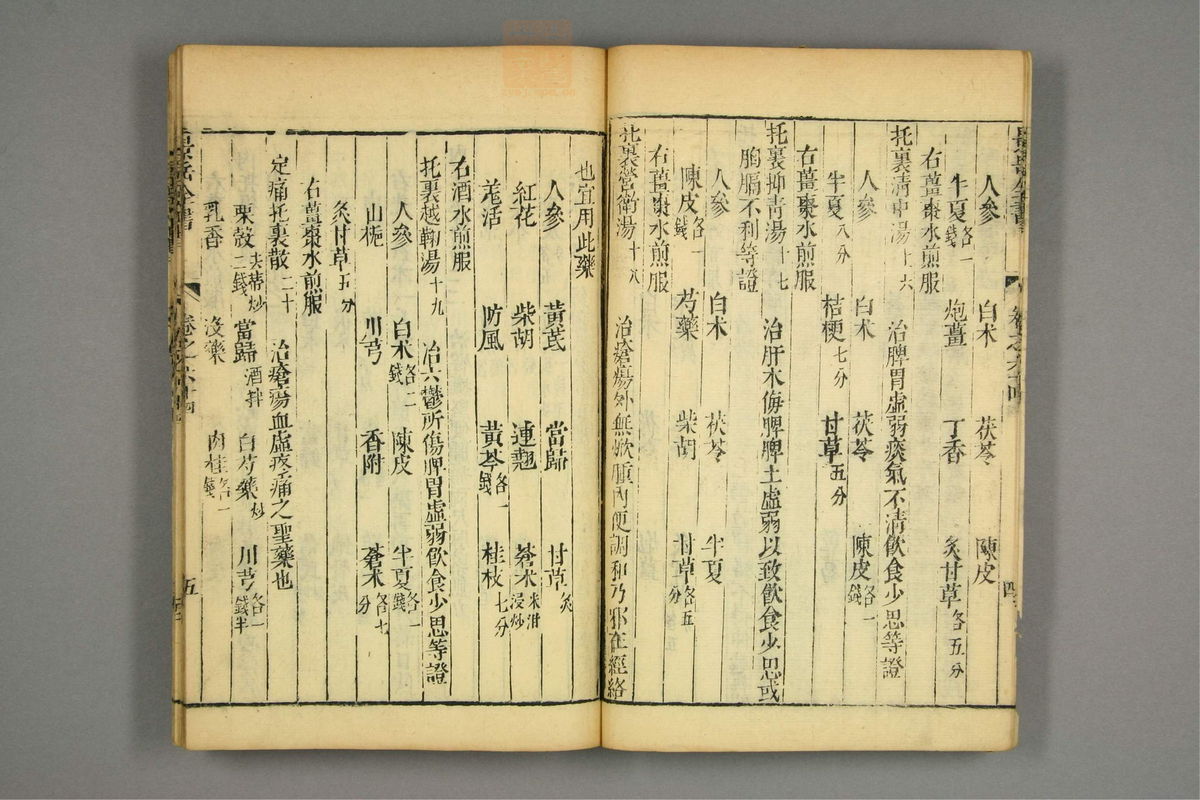 人參 白术 茯苓 陳皮
半夏各一錢 炮薑 丁香 炙甘草各五分
右薑棗水煎服
托裏清中湯十六 治脾胃虛弱痰氣不清飲食少思等證
人參 白术 茯苓 陳皮各一錢
半夏八分 桔梗七分 甘草五分
右薑棗水煎服
托裏抑青湯十七 治肝木侮脾脾土虛弱以致飲食少思或
胸膈不利等證
人參 白术 茯苓 半夏
陳皮各一錢 芍藥 柴胡 甘草各五分
右薑棗水煎服
托裏營衛湯十八 治瘡瘍外無焮腫內便調和乃邪在經絡
也宜用此藥
人參 黃芪 當歸 甘草炙
紅花 柴胡 連翹 蒼术米泔浸炒
羌活 防風 黃芩各一錢 桂枝七分
右酒水煎服
托裏越鞠湯十九 治六鬱所傷脾胃虛弱飲食少思等證
人參 白术各二錢 陳皮 半夏各一錢
山梔 川芎 香附 蒼术各七分
炙甘草五分
右薑棗水煎服
定痛托裏散二十 治瘡瘍血虛疼痛之聖藥也
粟殼去蒂炒二錢 當歸酒拌 白芍藥炒 川芎各一錢半
乳香 沒藥 肉桂各一錢
景岳全書 卷之六十四 四
景岳全書 卷之六十四 五